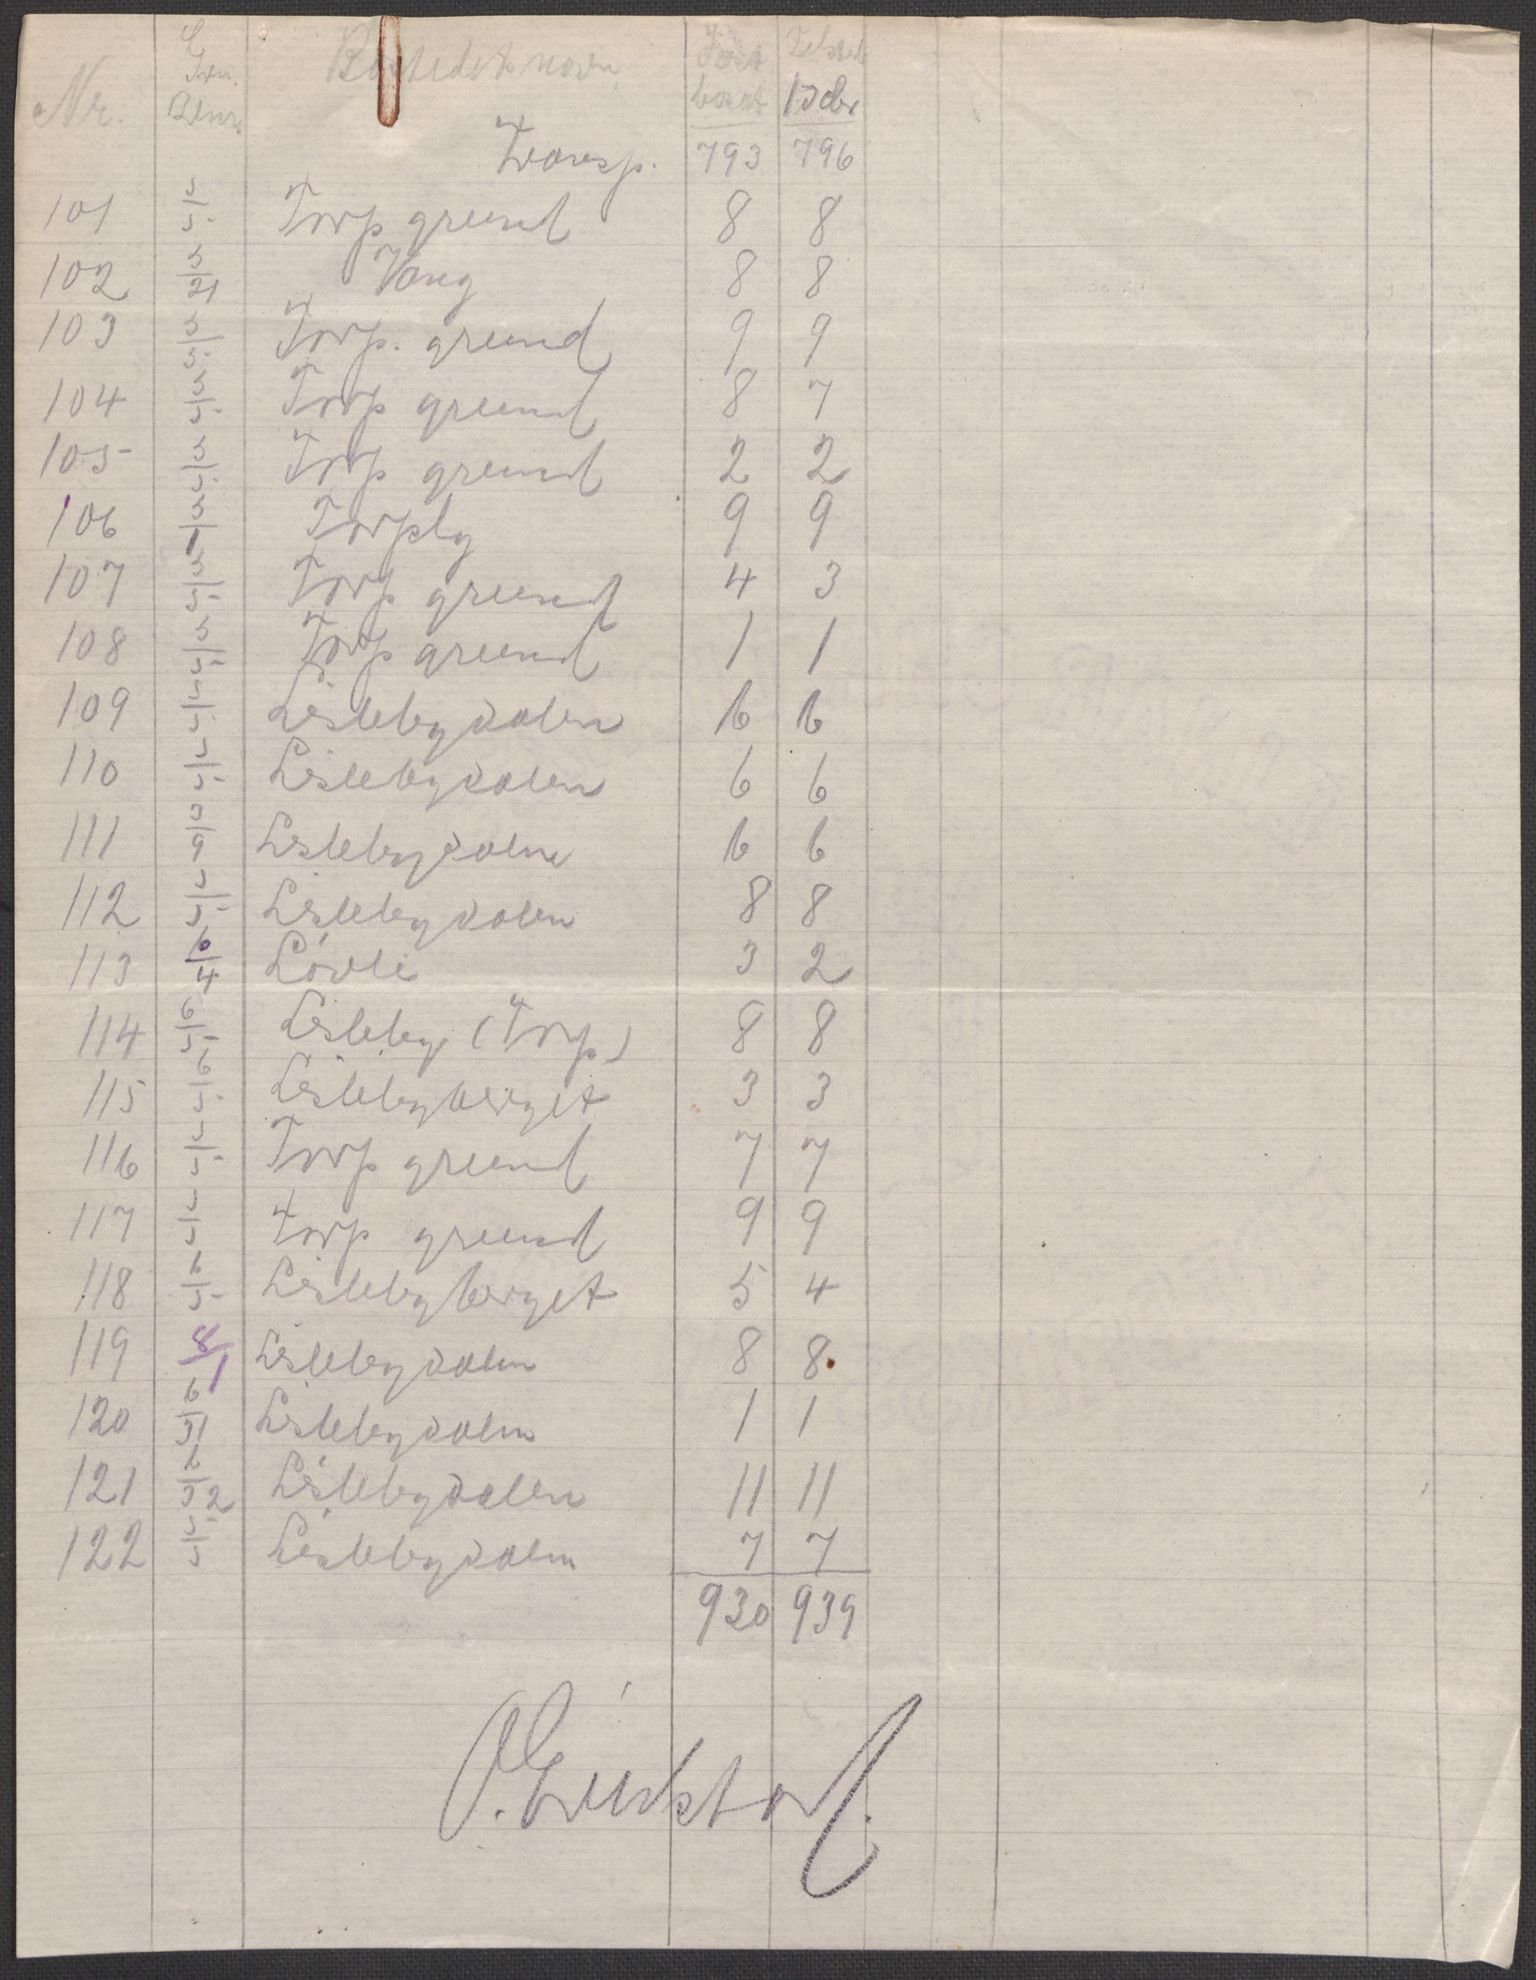 Nr. Gru. Bnr. Bostedets navn Fast bosat Tilstede 1 Dcbr
Transp. 793 796
101 Torp grund 8 8
102 3/21 Vang 8 8
103 Torp. grund 9 9
104 Torp grund 8 7
105 Torp grund 2 2
106 3/1 Torply 9 9
107 Torp grund 4 3
108 Torp grund 1 1
109 Lislebydalen 6 6
110 Lislebydalen 6 6
111 3/9 Lislebydalen 6 6
112 Lislebydalen 8 8
113 6/4 Lövli 3 2
114 6/5 Lisleby (Torp) 8 8
115 6/5 Lislebyberget 3 3
116 Torp grund 7 7
117 Torp grund 9 9
118 Lislebyberget 5 4
119 8/1 Lislebydalen 8 8
120 6/31 Lislebydalen 1 1
121 6/32 Lislebydalen 11 11
122 Lislebydalen 7 7
930 939